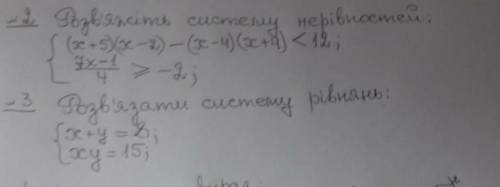 2. Розв'яжіть систему нерівностей:
(x+5)(x-2)-(x-4)(x+4)<12;
7x-1/4 ≥ -2;
3 Розв'язати систему рівнянь:
x+y=8;
xy=15;